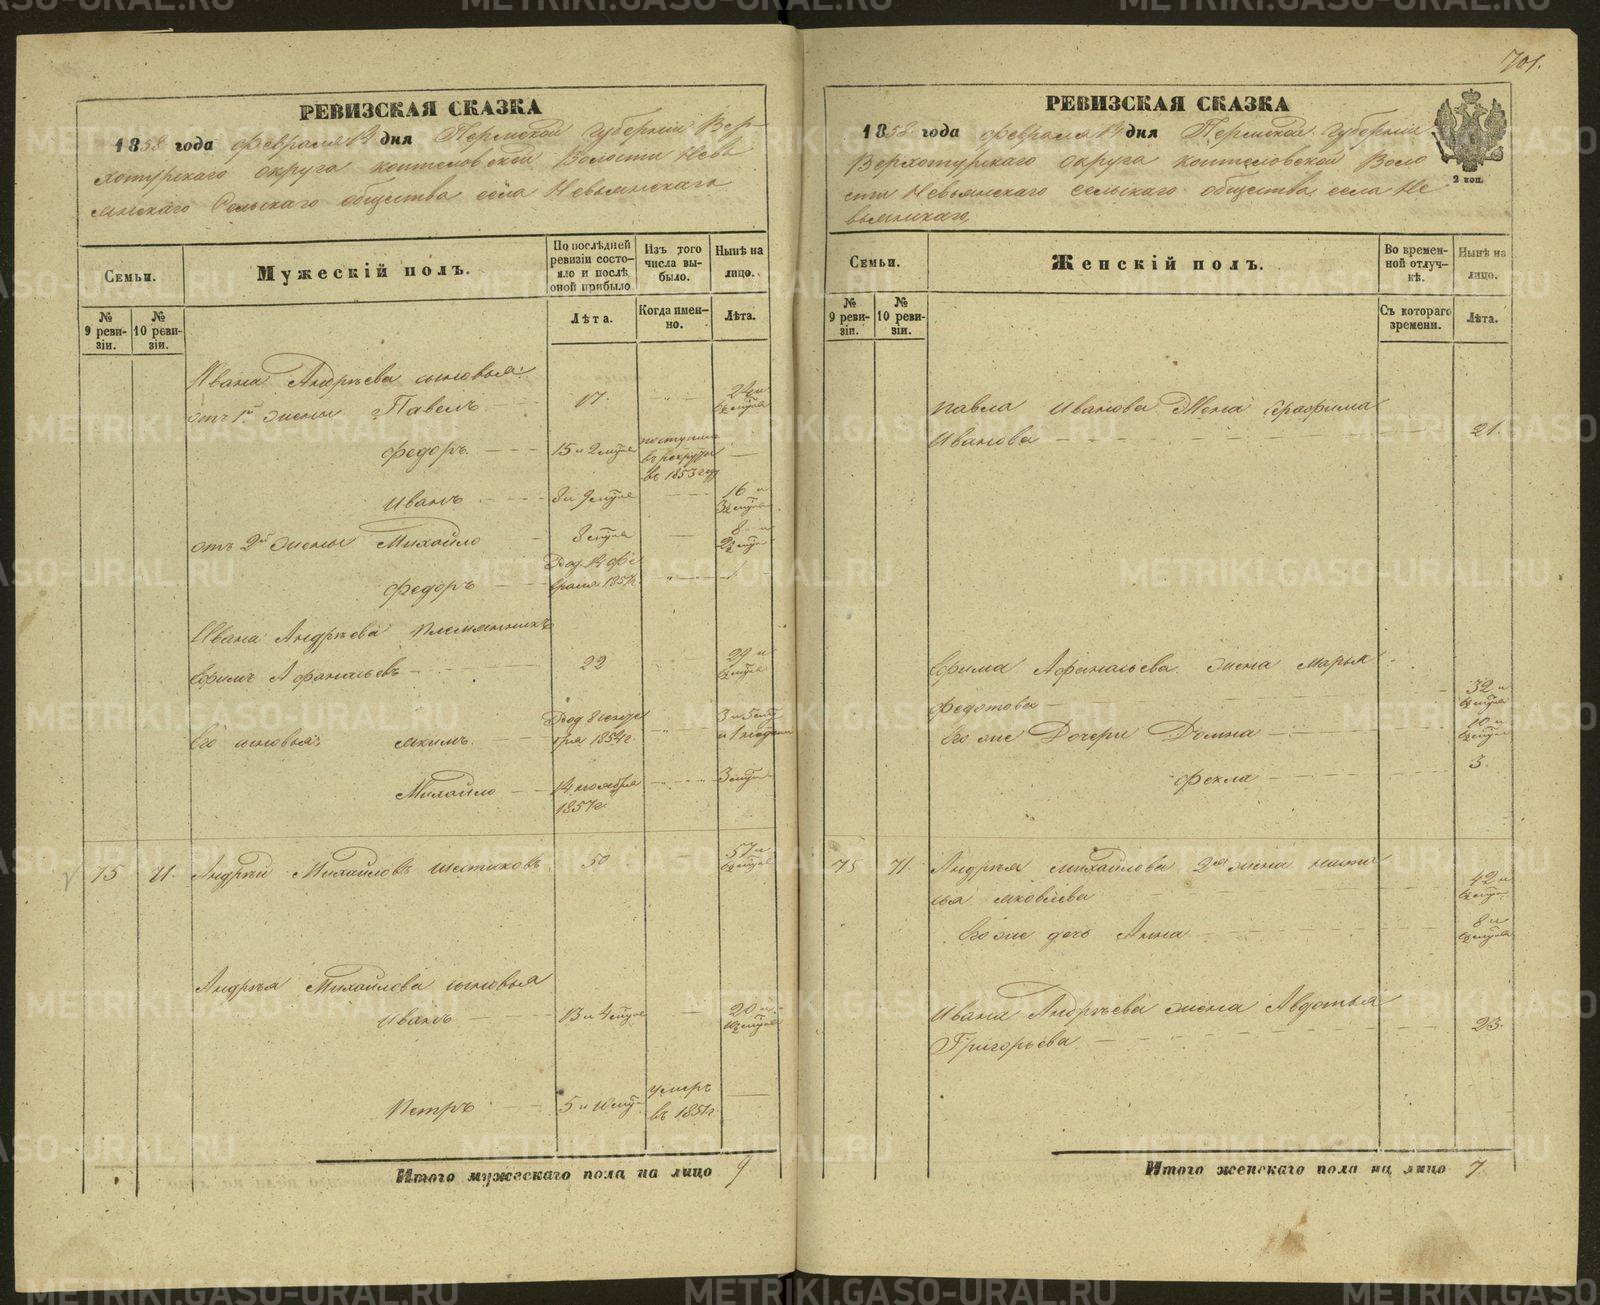 701.
РЕВИЗСКАЯ СКАЗКА
1858 года февраля 14 дня Пермской губернии Вер-
хотурскаго округа коптеловской Волости Невь
янскаго Сельскаго общества села Невьянскаго
Семьи.
Мужескій полъ.
По послѣдней ревизіи состояло и послѣ оной прибыло
Изъ того числа выбыло.
Нынѣ на лицо.
№ 9 ревизіи.
№ 10 ревизіи.
Лѣта.
Когда именно.
Лѣта.
Ивана Андреева сыновья:
отъ 1й жены Павелъ 17.
Федоръ 15 и 2 поступил въ рекруты въ 1853 году
Иванъ 8 и 9 16 и
отъ 2й жены Михайло 8 8 и
Федоръ Род. 14 февраля 1857г 1
Ивана Андреева племянникъ
Ефимъ Афанасьевъ 22 29 и
Его сыновья: Якимъ Род 8 1854г 3 и 5
Михайло 14 ноября 1857г 3
75 71. Андрей Михайловъ Шестаковъ 50 57 и
Андрея Михайлова сыновья
Иванъ 13 и 4 20 и
Петръ 5 и умеръ въ 1851г
Итого мужескаго пола на лицо 9
РЕВИЗСКАЯ СКАЗКА
1858 года февраля 14 дня Пермской губернии
Верхотурскаго округа коптеловской Воло
сти Невьянскаго сельскаго общества села Не
вьянскаго,
2 коп.
Семьи.
Женскій полъ.
Во временной отлучкѣ.
Нынѣ на лицо.
№ 9 ревизіи.
№ 10 ревизіи.
Съ котораго времени.
Лѣта.
Павла Иванова Жена Серафима
Иванова 21.
Ефима Афанасьева жена Марья
Федотова 32 и
Его же Дочери Домна 10 и
Фекла 3.
75 71. Андрея Михайлова 2я жена Наста
сья Яковлева 42 и
Его же дочь Анна 8 и
Ивана Андреева жена Авдотья
Григорьева 23.
Итого женскаго пола на лицо 7.
METRIKI.GASO-URAL.RU